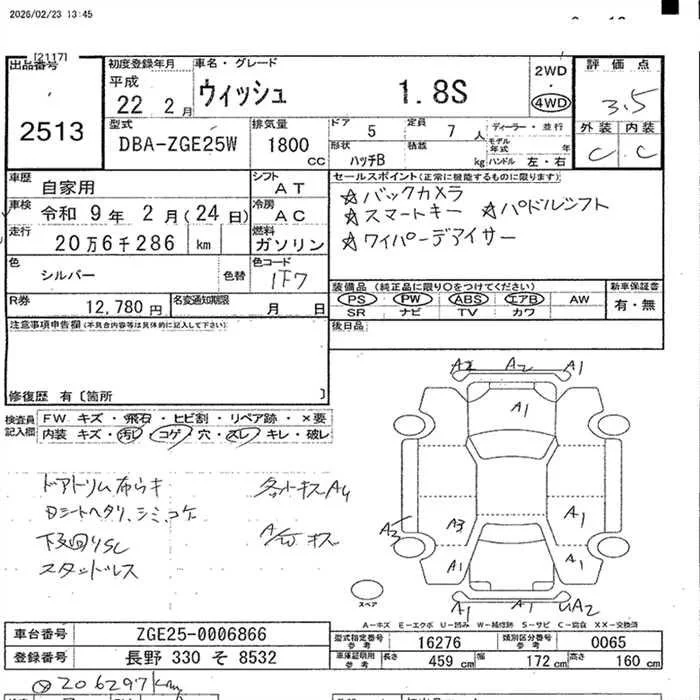 2026/02/23 13:45
[2117]
出品番号 2513
初度登録年月 平成 22 2月
車名・グレード ウィッシュ 1.8S
2WD 4WD
評価点 3.5
外装 内装
C C
型式 DBA-ZGE25W
排気量 1800 CC
ドア 5 定員 7 人
ディーラー・並行
形状 ハッチB 積載 kg
モデル年式 年
ハンドル 左・右
車歴 自家用
シフト AT
セールスポイント(正常に機能するものに限ります)
☆バックカメラ
☆スマートキー ☆パドルシフト
☆ワイパーデアイサー
車検 令和 9年 2月(24日)
冷房 AC
走行 20万6千286 km
燃料 ガソリン
色 シルバー 色替
色コード 1F7
装備品 (純正品に限り○をつけてください)
PS PW ABS エアB AW
SR ナビ TV カワ
新車保証書 有・無
R券 12,780円
名変通知期限 月 日
後日品
注意事項申告欄(不具合内容等は具体的に記入して下さい)
修復歴 有〔箇所 〕
検査員記入欄
FW キズ・飛石・ヒビ割・リペア跡・×要
内装 キズ・汚レ・コゲ・穴・スレ・キレ・破レ
A2 A2 A1
A1
A3 A3 A1
A1 A1
A1 A1 UA2
下廻りSL
スタッドレス
スペア
A-キズ E-エクボ U-凹み W-補修跡 S-サビ C-腐食 XX-交換済
車台番号 ZGE25-0006866
登録番号 長野 330 そ 8532
型式指定番号 参考 16276
類別区分番号 参考 0065
車庫証明用 参考 長さ 459 cm 幅 172 cm 高さ 160 cm
206297km